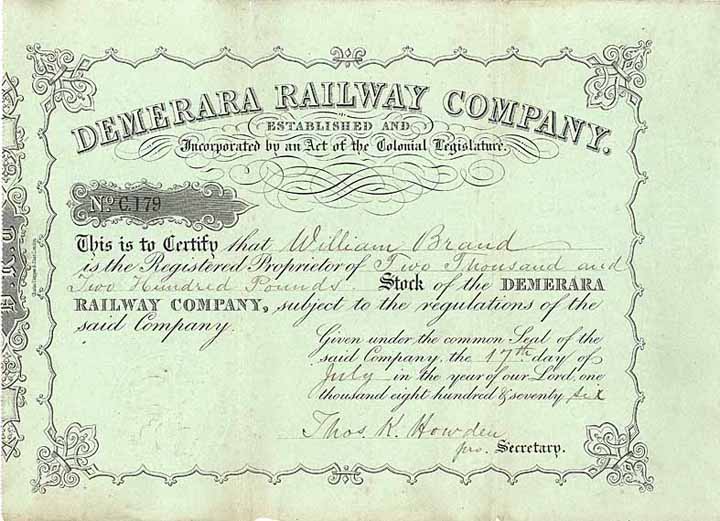 DEMERARA RAILWAY COMPANY.
ESTABLISHED AND
Incorporated by an Act of the Colonial Legislature.
No. C.179
This is to Certify that William Brand
is the Registered Proprietor of Two Thousand and
Two Hundred Pounds. Stock of the DEMERARA
RAILWAY COMPANY, subject to the regulations of the
said Company.
Given under the common Seal of the
said Company, the 17th day of
July in the year of our Lord, one
thousand eight hundred & seventy six
Thos. K. Howden
pro. Secretary.